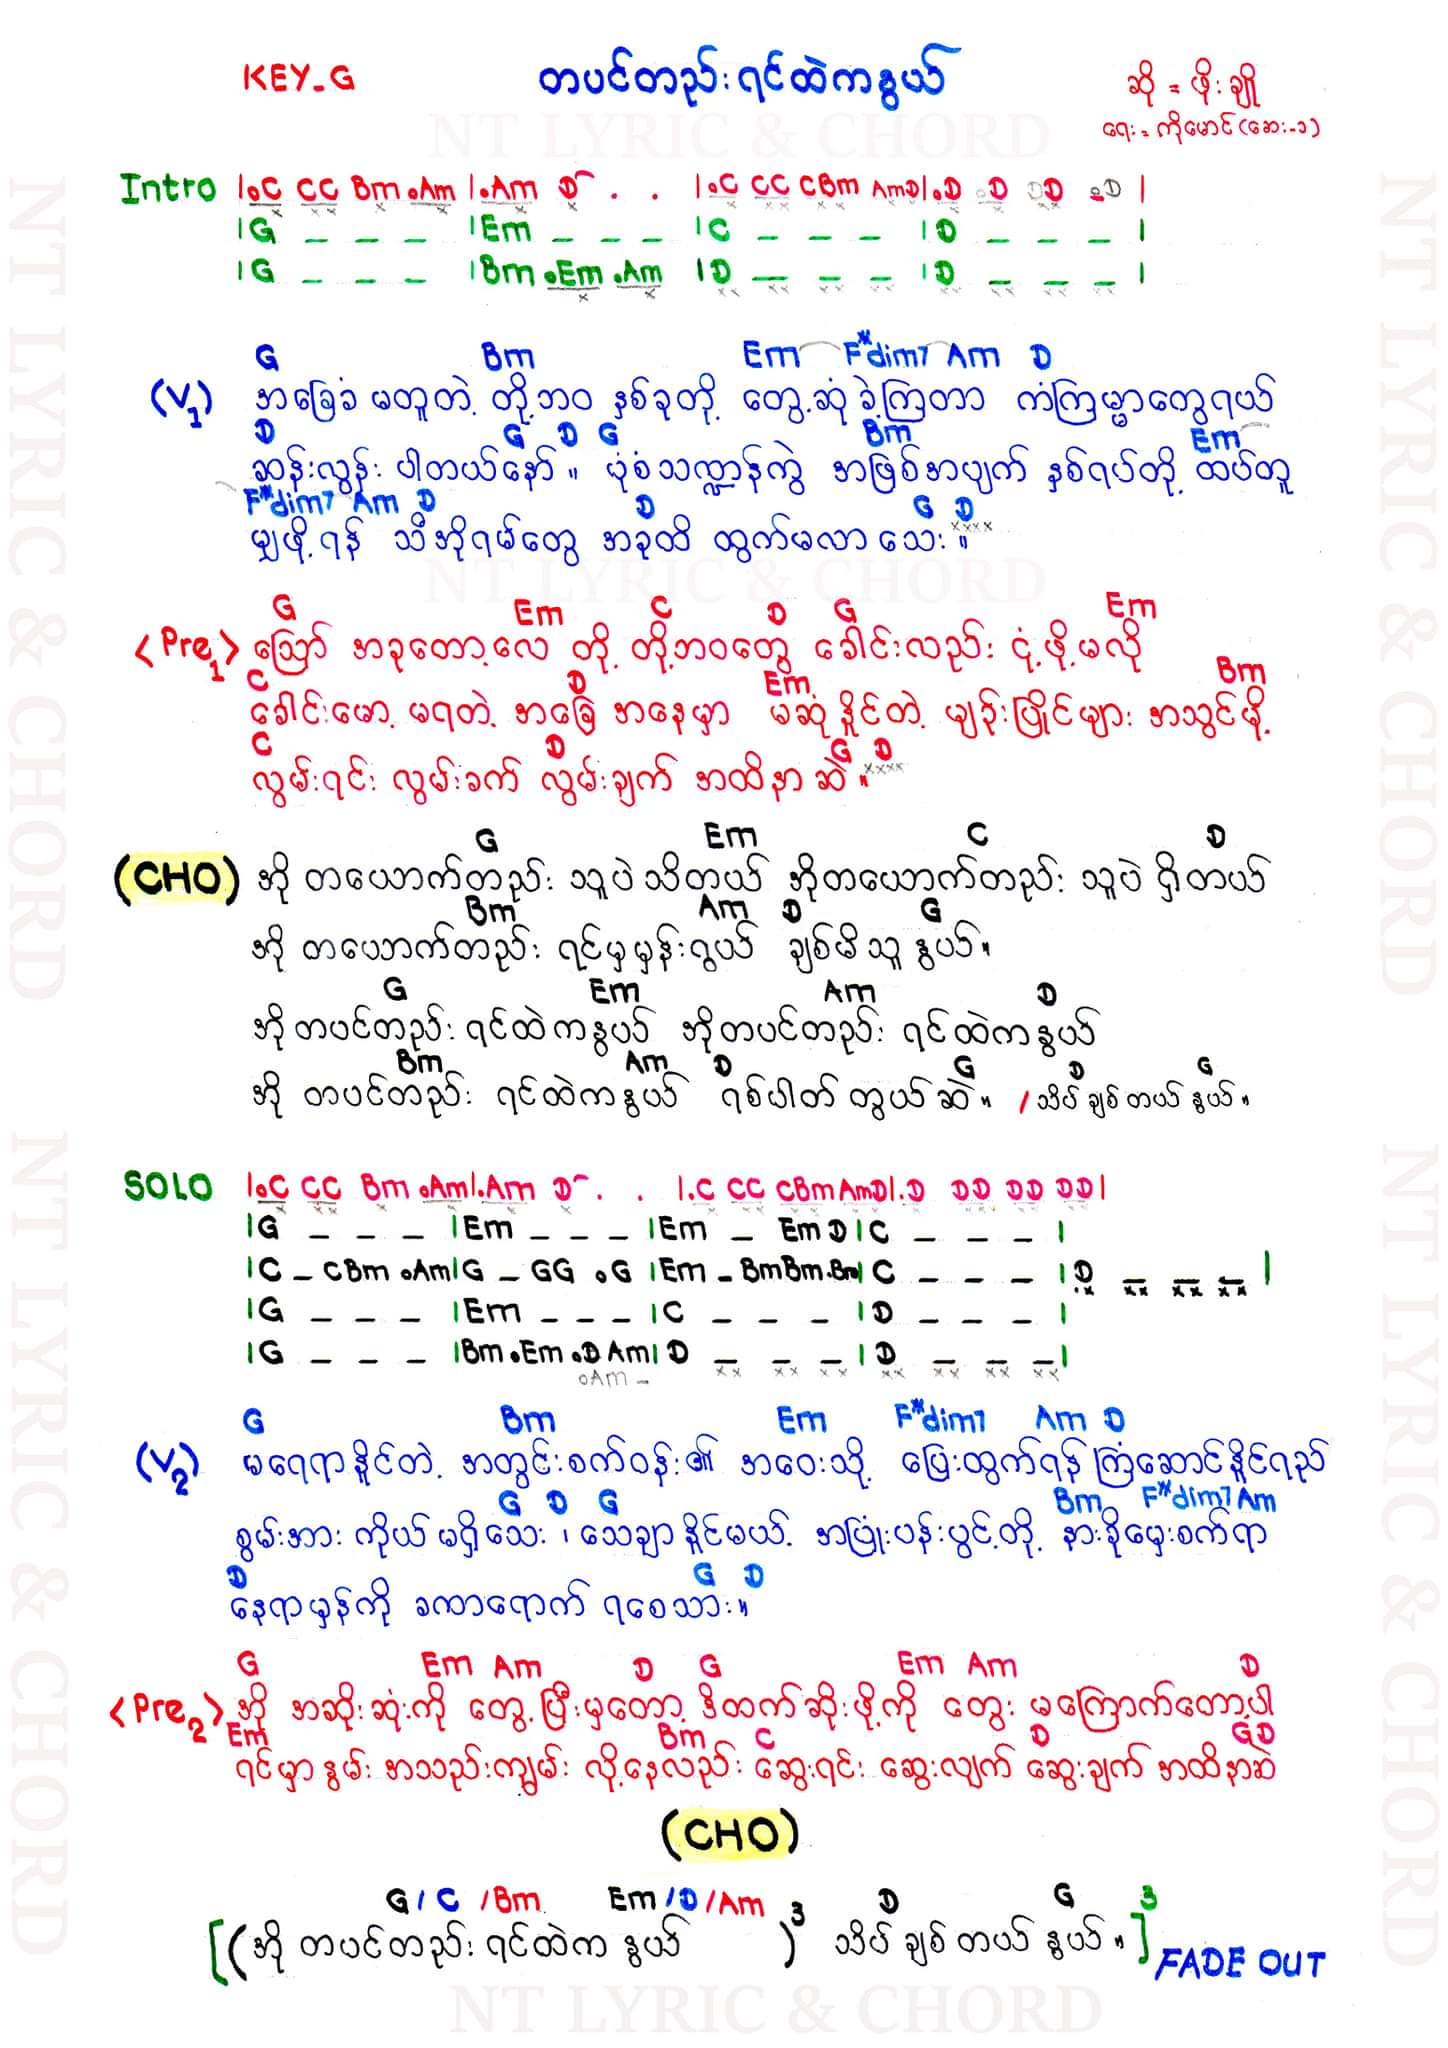 KEY_G
တပင်တည်းရင်ထဲကနွယ်
ဆို = ဖိုးချို
ရေး = ကိုမောင်(ဆေး-၁)
NT LYRIC & CHORD
Intro |.C CC Bm .Am |.Am D . . |.C CC CBm AmD|.D D DD .D |
|G _ _ _ |Em _ _ _ |C _ _ _ |D _ _ _ |
|G _ _ _ |Bm .Em .Am |D _ _ _ |D _ _ _ |
G Bm Em F#dim7 Am D
(V1) အခြေခံ မတူတဲ့ တို့ဘဝ နှစ်ခုတို့ တွေ့ဆုံခဲ့ကြတာ ကံကြမ္မာတွေရယ်
D G D G Bm Em
ဆန်းလွန်း ပါတယ်နော်။ ပုံစံသဏ္ဌာန်ကွဲ အဖြစ်အပျက် နှစ်ရပ်တို့ ထပ်တူ
F#dim7 Am D D G D
မျှဖို့ရန် သီအိုရမ်တွေ အခုထိ ထွက်မလာသေး။
NT LYRIC & CHORD
G Em C D G Em
<Pre1> ဩော် အခုတော့လေ တို့ တို့ဘဝတွေ ခေါင်းလည်း ငုံ့ဖို့မလို
C D Em Bm
ခေါင်းမော့ မရတဲ့ အခြေ အနေမှာ မဆုံနိုင်တဲ့ မျဉ်းပြိုင်များ အသွင်မို့
C D G D
လွမ်းရင်း လွမ်းခက် လွမ်းချက် အထိနာဆဲ။
G Em C D
(CHO) အို တယောက်တည်း သူပဲသိတယ် အိုတယောက်တည်း သူပဲ ရှိတယ်
Bm Am D G
အို တယောက်တည်း ရင်မှမှန်းရွယ် ချစ်မိသူ နွယ်။
G Em Am D
အိုတပင်တည်း ရင်ထဲကနွယ် အိုတပင်တည်း ရင်ထဲကနွယ်
Bm Am D G D G
အို တပင်တည်း ရင်ထဲကနွယ် ရစ်ပါတ်တွယ်ဆဲ။ / သိပ်ချစ်တယ်နွယ်။
SOLO |.C CC Bm .Am|.Am D . . |.C CC CBmAmD|.D DD DD DD|
|G _ _ _ |Em _ _ _ |Em _ EmD|C _ _ _ |
|C _ CBm .Am|G _ GG .G |Em _ BmBm.Bm|C _ _ _ |D _ _ _ |
|G _ _ _ |Em _ _ _ |C _ _ _ |D _ _ _ |
|G _ _ _ |Bm.Em .DAm|D _ _ _ |D _ _ _|
.Am _
G Bm Em F#dim7 Am D
(V2) မရေရာနိုင်တဲ့ အတွင်းစက်ဝန်း၏ အဝေးသို့ ပြေးထွက်ရန် ကြံဆောင်နိုင်ရည်
G D G Bm F#dim7 Am
စွမ်းအား ကိုယ်မရှိသေး ၊ သေချာနိုင်မယ့် အပြုံးပန်းပွင့်တို့ နားခိုမှေးစက်ရာ
D G D
နေရာမှန်ကို ခဏာရောက် ရစေသား။
G Em Am D G Em Am D
<Pre2> အို အဆိုးဆုံးကို တွေ့ပြီးမှတော့ ဒီထက်ဆိုးဖို့ကို တွေး မကြောက်တော့ပါ
Em Bm C D G D
ရင်မှာနွမ်း အသည်းကျွမ်း လို့နေလည်း ဆွေးရင်း ဆွေးလျက် ဆွေးချက် အထိနာဆဲ
(CHO)
G / C / Bm Em / D / Am D G
[(အို တပင်တည်း ရင်ထဲက နွယ် )3 သိပ်ချစ်တယ် နွယ်။]3
FADE OUT
NT LYRIC & CHORD
NT LYRIC & CHORD
NT LYRIC & CHORD
NT LYRIC & CHORD
NT LYRIC & CHORD